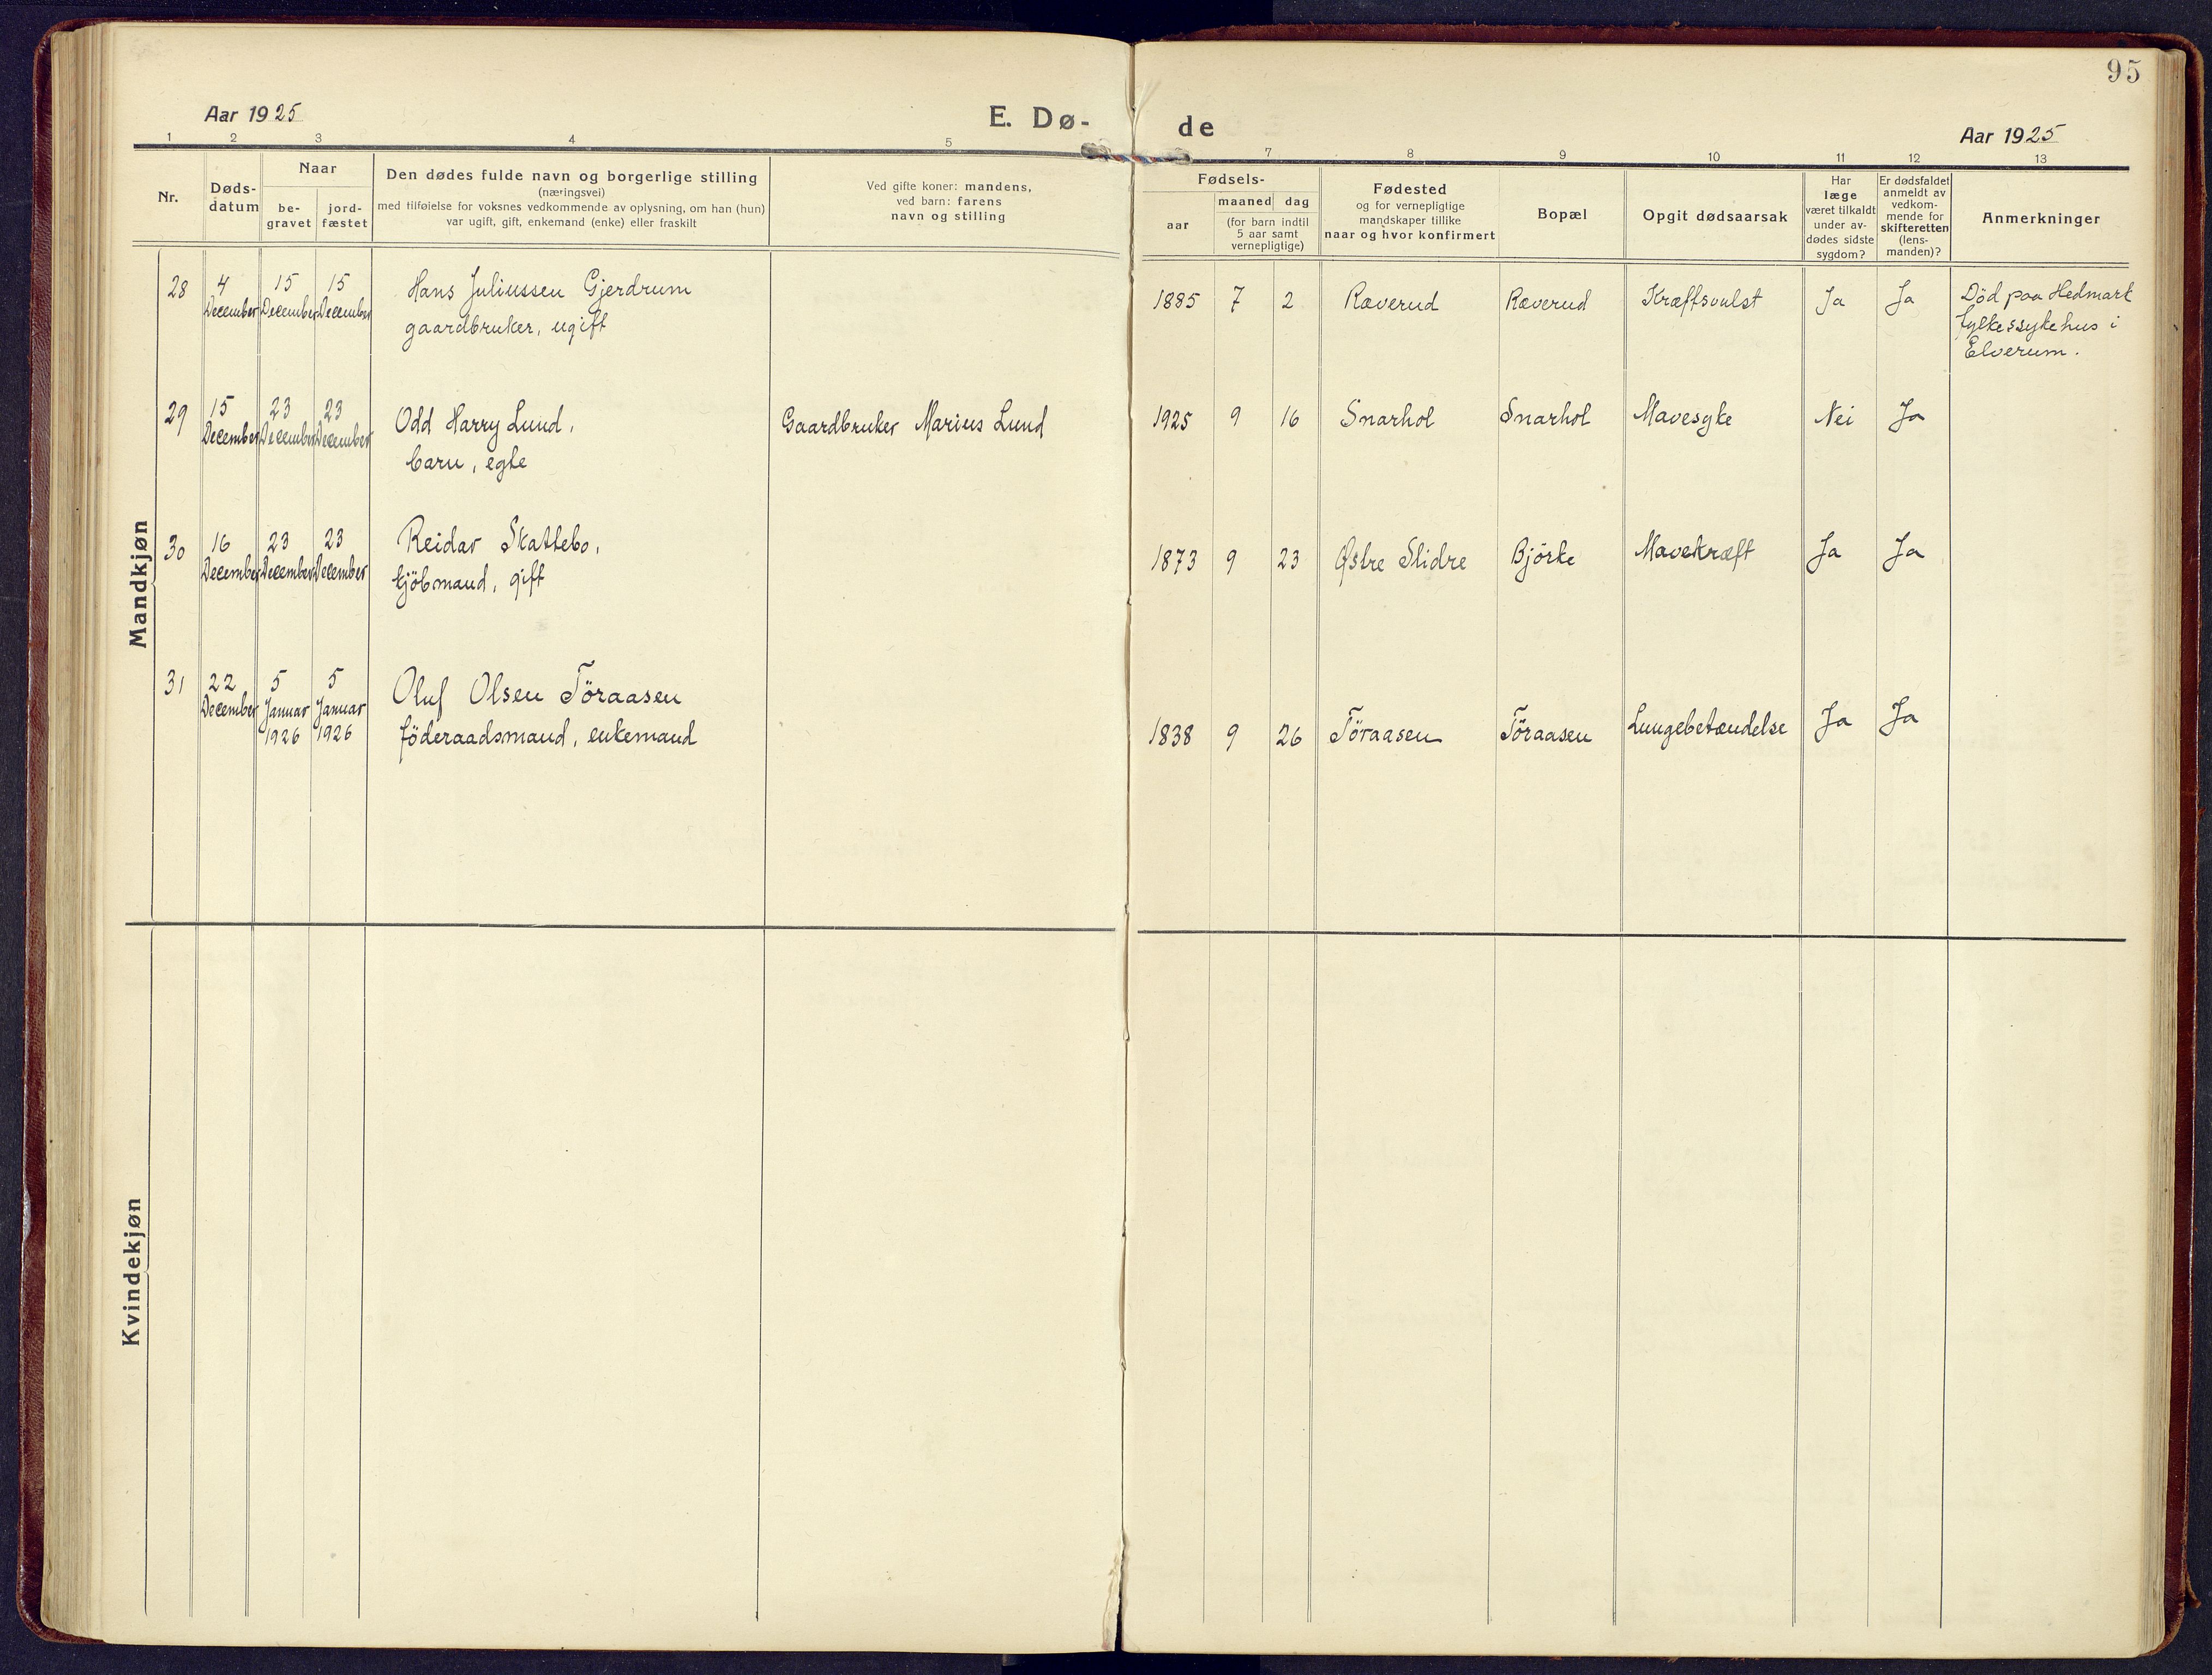 95
Aar 1925
E. Dø-
de
Aar 1925
1 2 3 4 5
7 8 9 10 11 12 13
Nr.
Døds-
datum
Naar
be-
gravet
jord-
fæstet
Den dødes fulde navn og borgerlige stilling
(næringsvei)
med tilføielse for voksnes vedkommende av oplysning, om han (hun)
var ugift, gift, enkemand (enke) eller fraskilt
Ved gifte koner: mandens,
ved barn: farens
navn og stilling
Fødsels-
aar
maaned dag
(for barn indtil
5 aar samt
vernepligtige)
Fødested
og for vernepligtige
mandskaper tillike
naar og hvor konfirmert
Bopæl
Opgit dødsaarsak
Har
læge
været tilkaldt
under av-
dødes sidste
sygdom?
Er dødsfaldet
anmeldt av
vedkom-
mende for
skifteretten
(lens-
manden)?
Anmerkninger
Mandkjøn
28
4
December
15
December
15
December
Hans Juliussen Gjerdrum
gaardbruker, ugift
1885 7 2
Ræverud
Ræverud
Kræftsvulst
Ja
Ja
Död paa Hedmark
fylkessykehus i
Elverum.
29
15
December
23
December
23
December
Odd Harry Lund,
barn, egte
Gaardbruker Marius Lund
1925 9 16
Snarhol
Snarhol
Mavesyke
Nei
Ja
30
16
December
23
December
23
December
Reidar Skattebo,
kjöbmand, gift
1873 9 23
Østre Slidre
Björke
Mavekræft
Ja
Ja
31
22
December
5
Januar
1926
5
Januar
1926
Oluf Olsen Töraasen
föderaadsmand, enkemand
1838 9 26
Töraasen
Töraasen
Lungebetændelse
Ja
Ja
Kvindekjøn